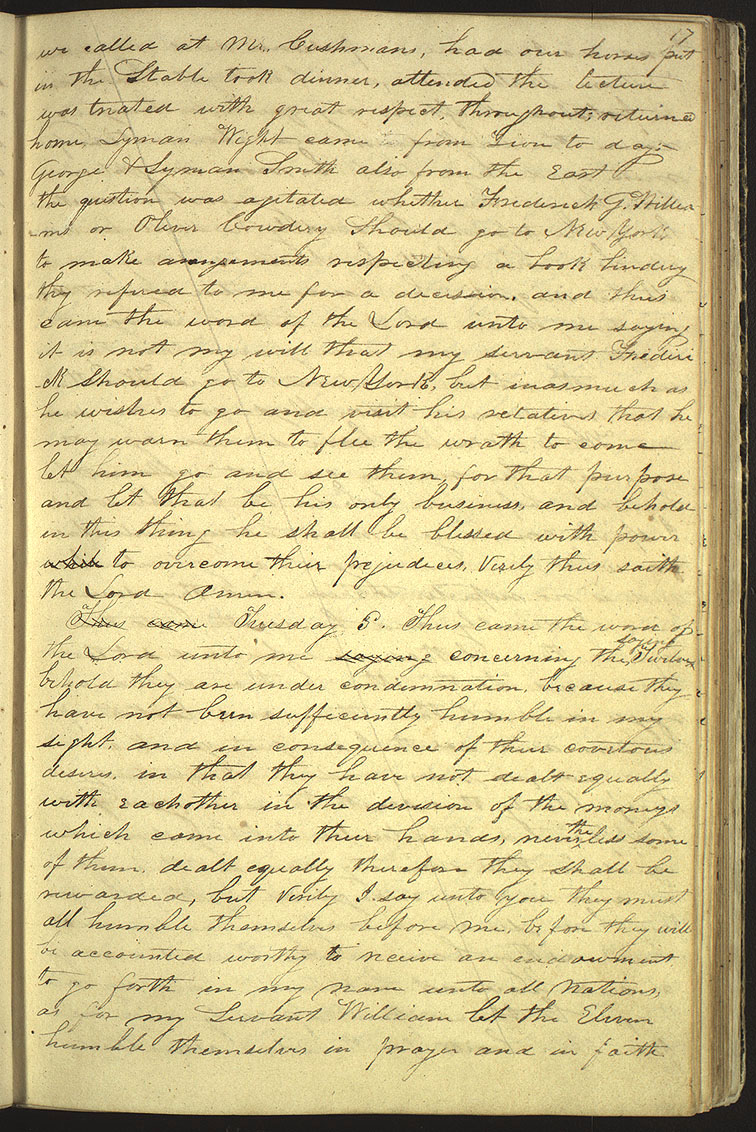 17
we called at Mr. Cushmans, had our horses put
in the Stable took dinner, attended the lecture
was treated with great respect, throughout; returned
home, Lyman Wight came from Zion to day;-
George & Lyman Smith also from the East
the question was agitated whether Frederick G. Willia
-ms or Oliver Cowdery Should go to New York
to make arangements respecting a book bindery
they refered to me for a decision, and thus
cam the word of the Lord unto me saying
it is not my will that my servant Frederi
-ck should go to New York, but inasmuch as
he wishes to go and visit his relatives that he
may warn them to flee the wrath to come
let him go and see them, for that purpose
and let that be his only business, and behold
in this thing he shall be blessed with power
while to overcome their prejudices, Verily thus saith
the Lord Amen.
Thus came Tuesday 3. Thus came the word of
the Lord unto me saying concerning the saying Twelve
behold they are under condemnation, because they
have not been sufficiently humble in my
sight, and in consequence of their covetous
desires, in that they have not dealt equally
with each other in the division of the moneys
which came into their hands, nevertheless some
of them, dealt equally therefore they shall be
rewarded, but Verily I say unto you they must
all humble themselves before me, before they will
be accounted worthy to receive an endowment
to go forth in my name unto all nations,
as for my Servant William let the Eleven
humble themselves in prayer and in faith